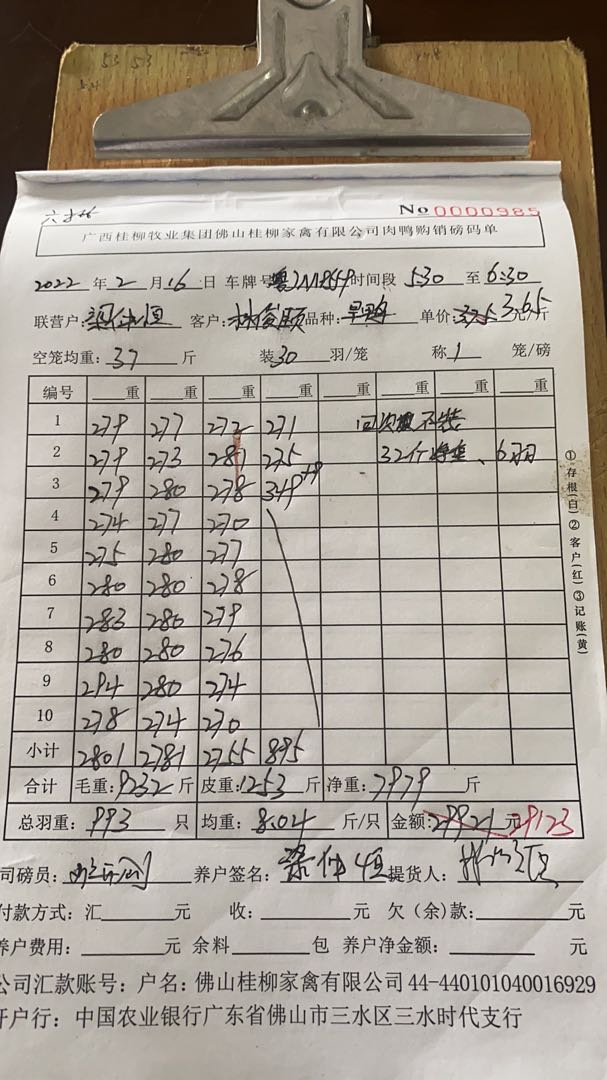 No 0000985
广西桂柳牧业集团佛山桂柳家禽有限公司肉鸭购销磅码单
2022 年 2 月 16 日 车牌号 时间段 5:30 至 6:30
联营户: 客户: 品种: 单价: 3.75 3.65 元/斤
空笼均重: 37 斤 装 30 羽/笼 称 1 笼/磅
编号 重 重 重 重 重 重 重 重
1 279 277 272 271 不装
2 279 273 281 275 32个 6羽
3 279 280 278 349
4 274 277 270
5 275 280 277
6 280 280 278
7 283 280 279
8 280 280 276
9 294 280 274
10 278 274 270
小计 2801 2781 2755 895
合计 毛重: 9232 斤 皮重: 1253 斤 净重: 7979 斤
总羽重: 993 只 均重: 8.04 斤/只 金额: 29921 元 29123
司磅员: 养户签名: 提货人:
付款方式: 汇 元 收: 元 欠(余)款: 元
养户费用: 元 余料 包 养户净金额: 元
公司汇款账号: 户名: 佛山桂柳家禽有限公司 44-440101040016929
开户行: 中国农业银行广东省佛山市三水区三水时代支行
①存根(白)②客户(红)③记账(黄)